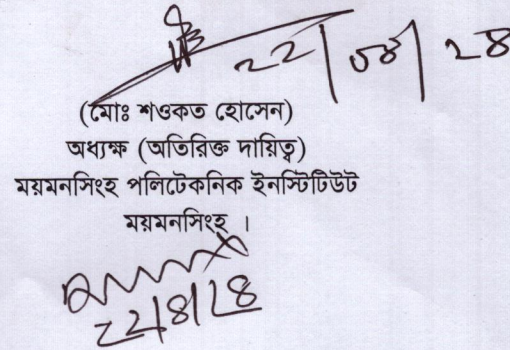 ২২/০৪/২৪
(মোঃ শওকত হোসেন)
অধ্যক্ষ (অতিরিক্ত দায়িত্ব)
ময়মনসিংহ পলিটেকনিক ইনস্টিটিউট
ময়মনসিংহ ।
২২/৪/২৪